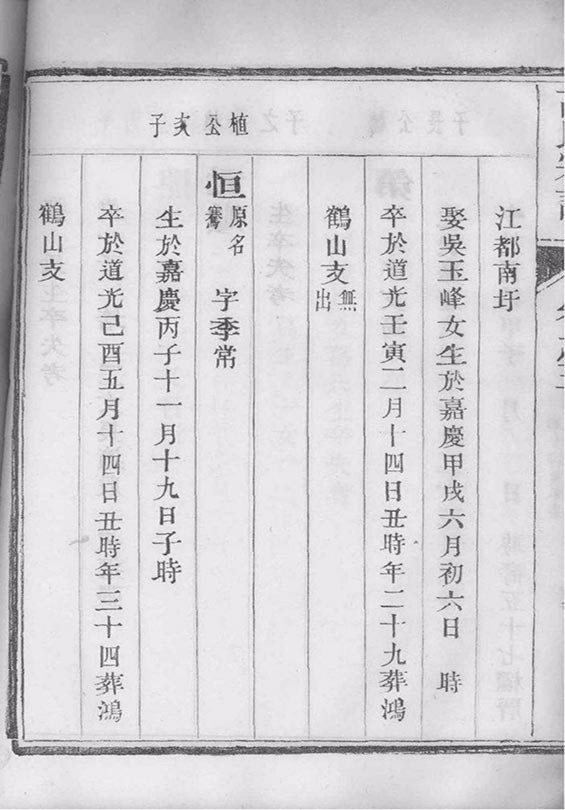 江都南圩
娶吳玉峰女生於嘉慶甲戌六月初六日　時
卒於道光壬寅二月十四日丑時年二十九葬鴻
鶴山支無出
植公次子
恒原名　字季常
生於嘉慶丙子十一月十九日子時
卒於道光己酉五月十四日丑時年三十四葬鴻
鶴山支